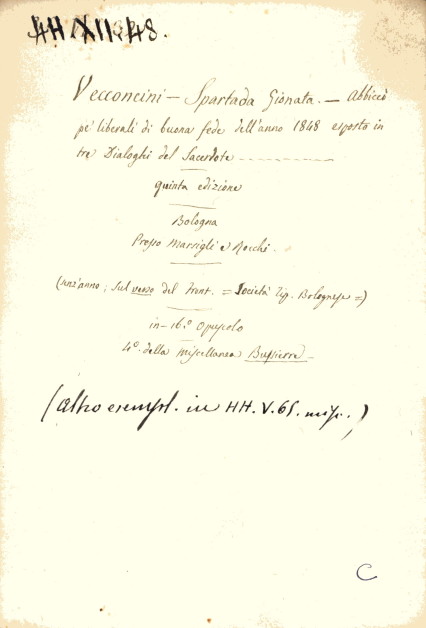 HH. XII. 48.
Vecconcini — Spartada Gionata. — Abbiccò
pe' liberali di buona fede dell'anno 1848 esposto in
tre Dialoghi del Sacerdote
quinta edizione
Bologna
Presso Marsigli e Rocchi.
(senz'anno; sul verso del front. = Società Tip. Bolognese =)
in-16.° Opuscolo
4.° della Miscellanea Bussierre
(altro esempl. in HH. V. 65. misc.)
C